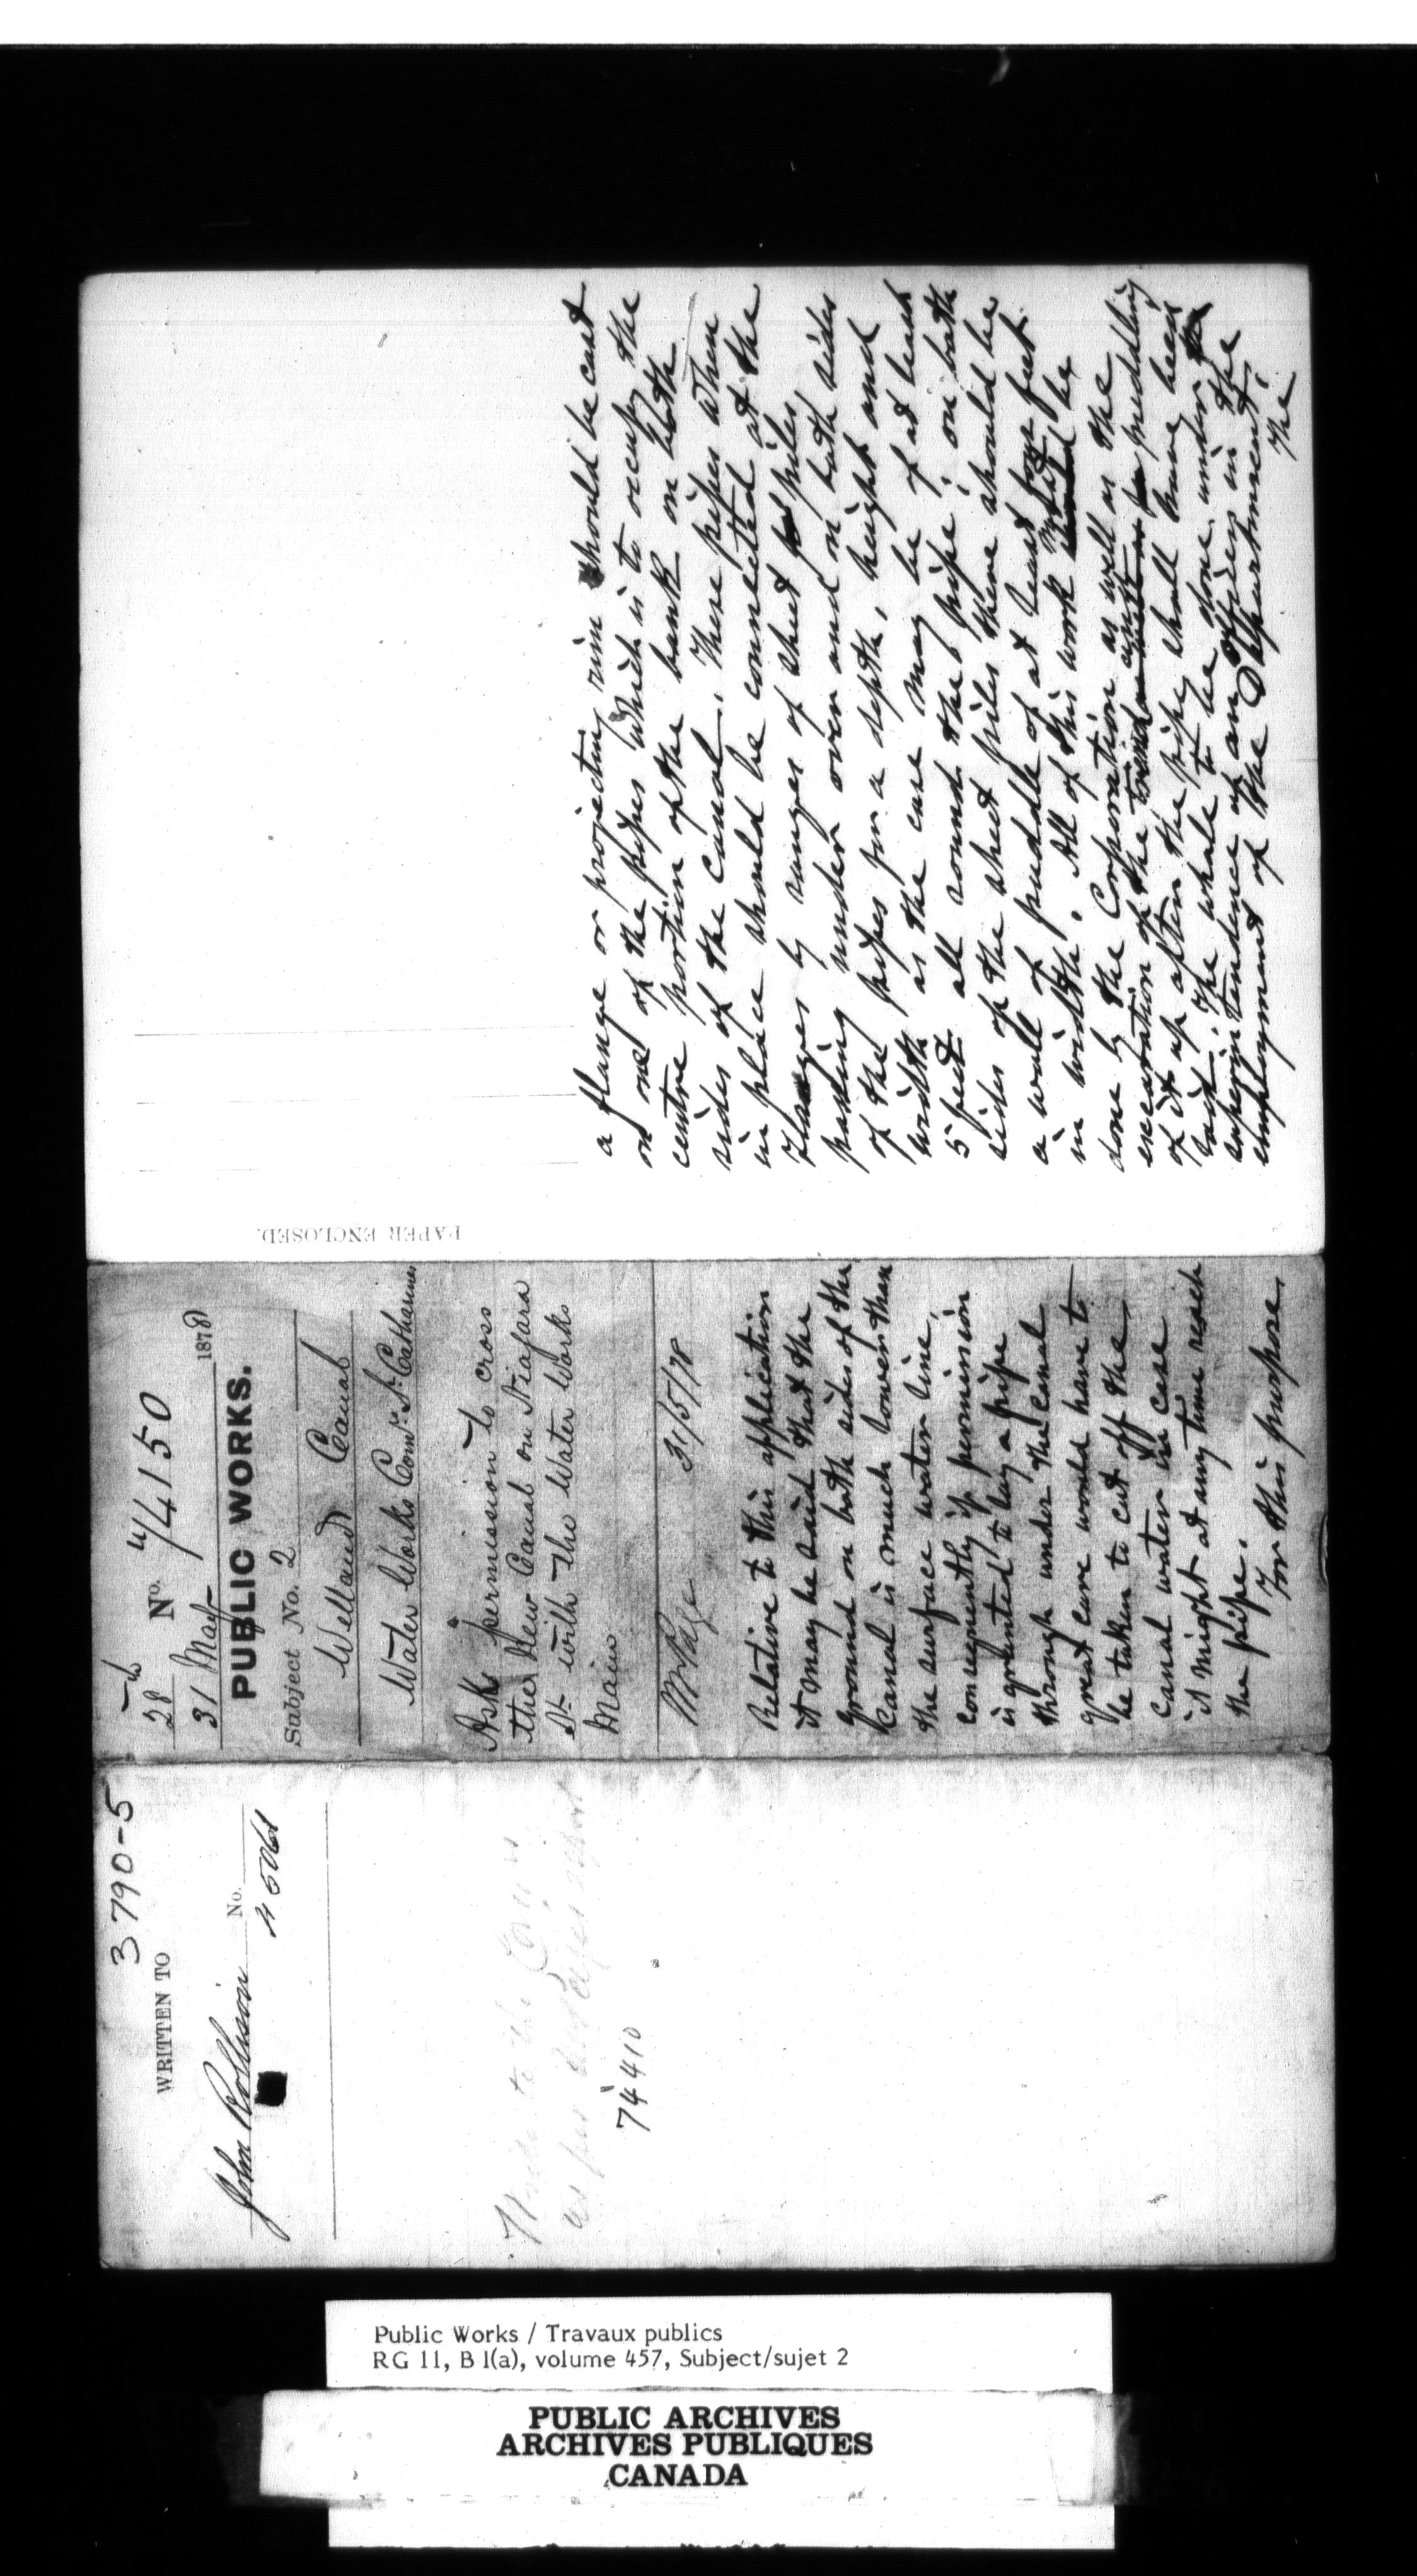 3790-5
WRITTEN TO
No.
John Rollison 4506
Write to the Com
as per Mr Page's report
74410
28 No. 74150
31 May 1878
PUBLIC WORKS.
Subject No. 2
Welland Canal
Water Works Comrs St. Catharines
Asks permission to cross
the New Canal on Niagara
St. with the Water Works
Main
Mr Page 31/5/78
Relative to this application
it may be said that the
ground on both sides of the
Canal is much lower than
the surface water line,
consequently if permission
is granted to lay a pipe
through under the canal
great care would have to
be taken to cut off the
canal water in case
it might at any time reach
the pipe.
For this purpose,
PAPER ENCLOSED.
a flange or projecting rim should be cast
on one of the pipes which is to occupy the
centre portion of the bank on both
sides of the Canal. These pipes when
in place should be connected at the
flanges by ranges of sheet piles
passing under over and on both sides
of the pipes for a depth, height and
width as the case may be of at least
5 feet all round the pipe; on both
sides of the sheet piles there should be
a wall of puddle of at least four feet
in width. All of this work must be
done by the Corporation as well as the
excavation of the trench and puddling
of it up after the pipe shall have been
laid. The whole to be done under the
superintendence of an officer in the
employment of the Department.
The
Public Works / Travaux publics
RG 11, B 1(a), volume 457, Subject/sujet 2
PUBLIC ARCHIVES
ARCHIVES PUBLIQUES
CANADA